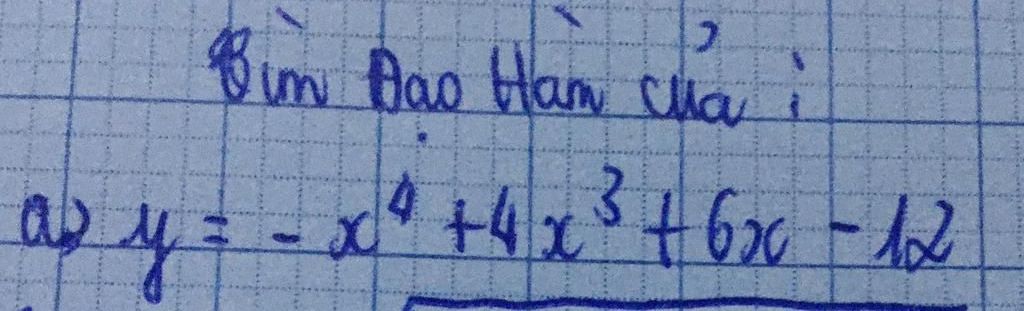 Tìm Đạo Hàm của :
a) y = - x⁴ + 4x³ + 6x - 12